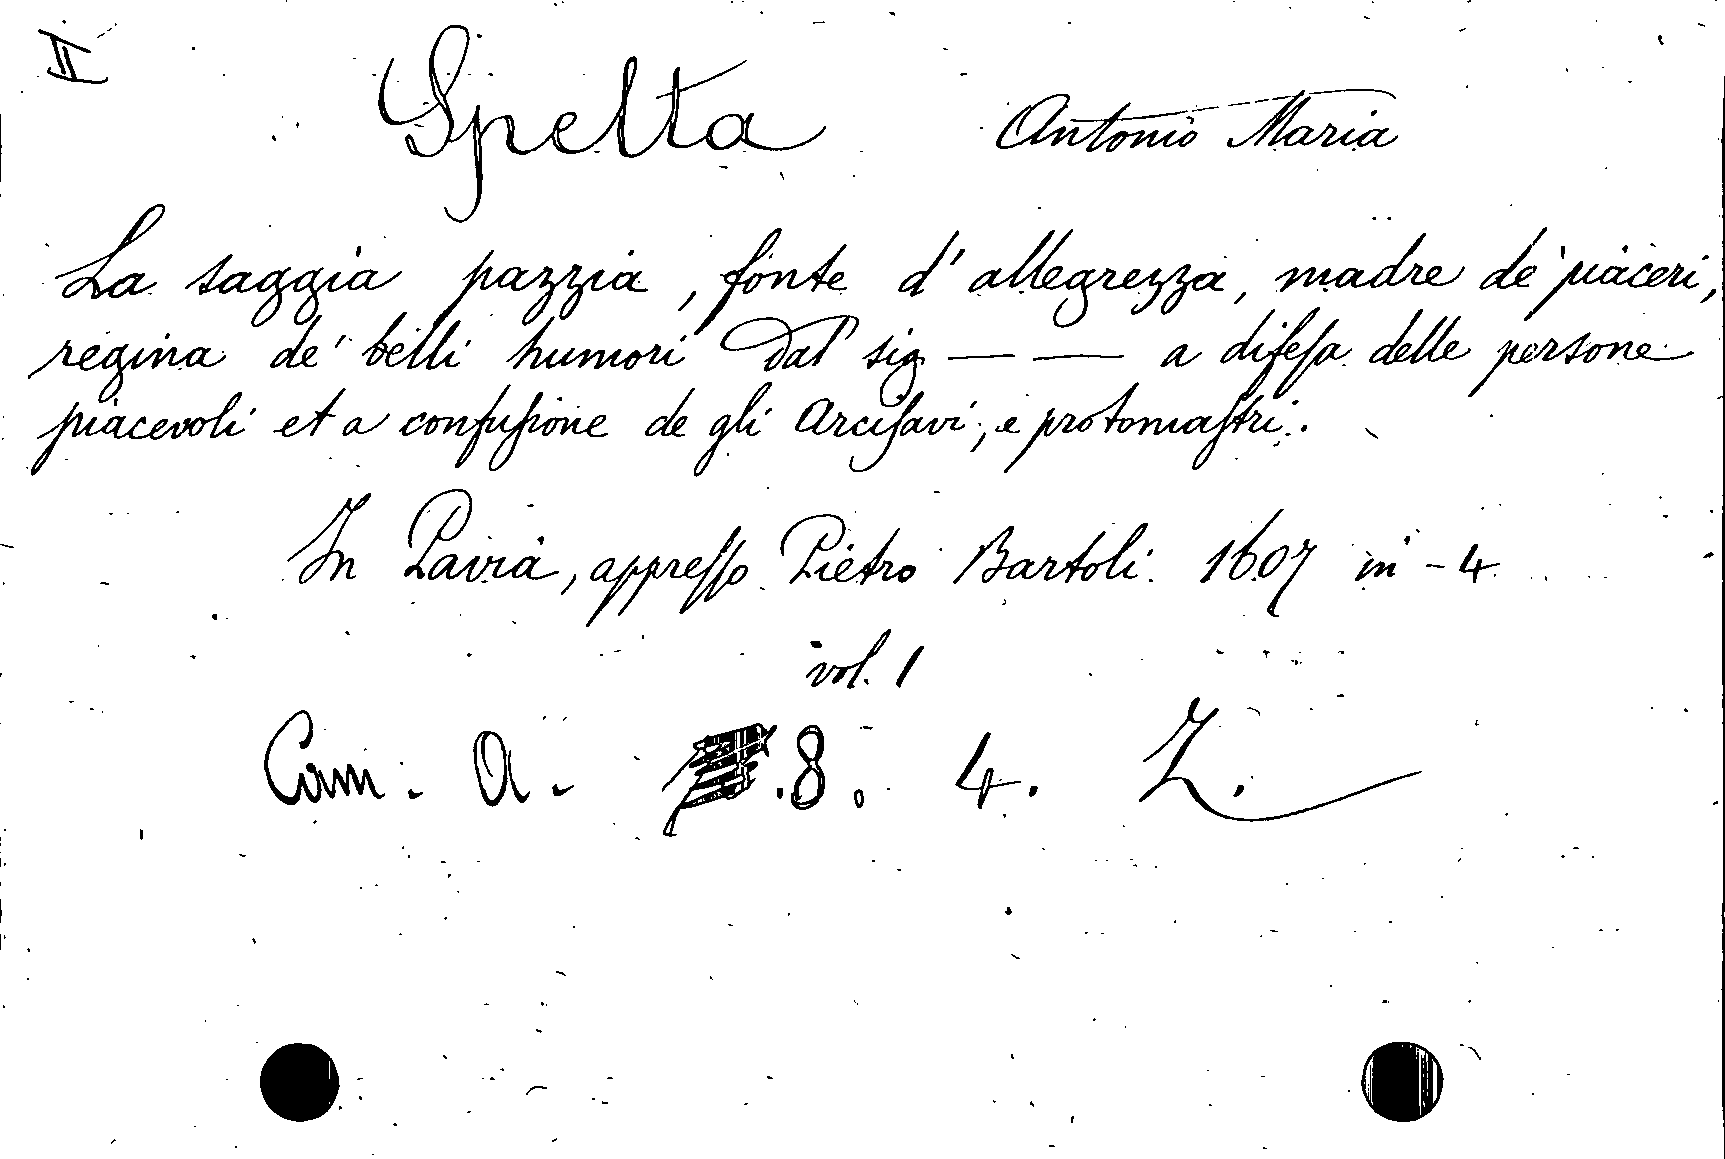 II
Spelta Antonio Maria
La saggia pazzia, fonte d'allegrezza, madre de' piaceri,
regina de' belli humori Dal sig — — a difeſa delle persone
piacevoli et a confuſione de gli Arciſavi, e protomaſtri.
In Pavia, appreſſo Pietro Bartoli. 1607 in-4
vol. 1
Cam. A. .8. 4. Z.